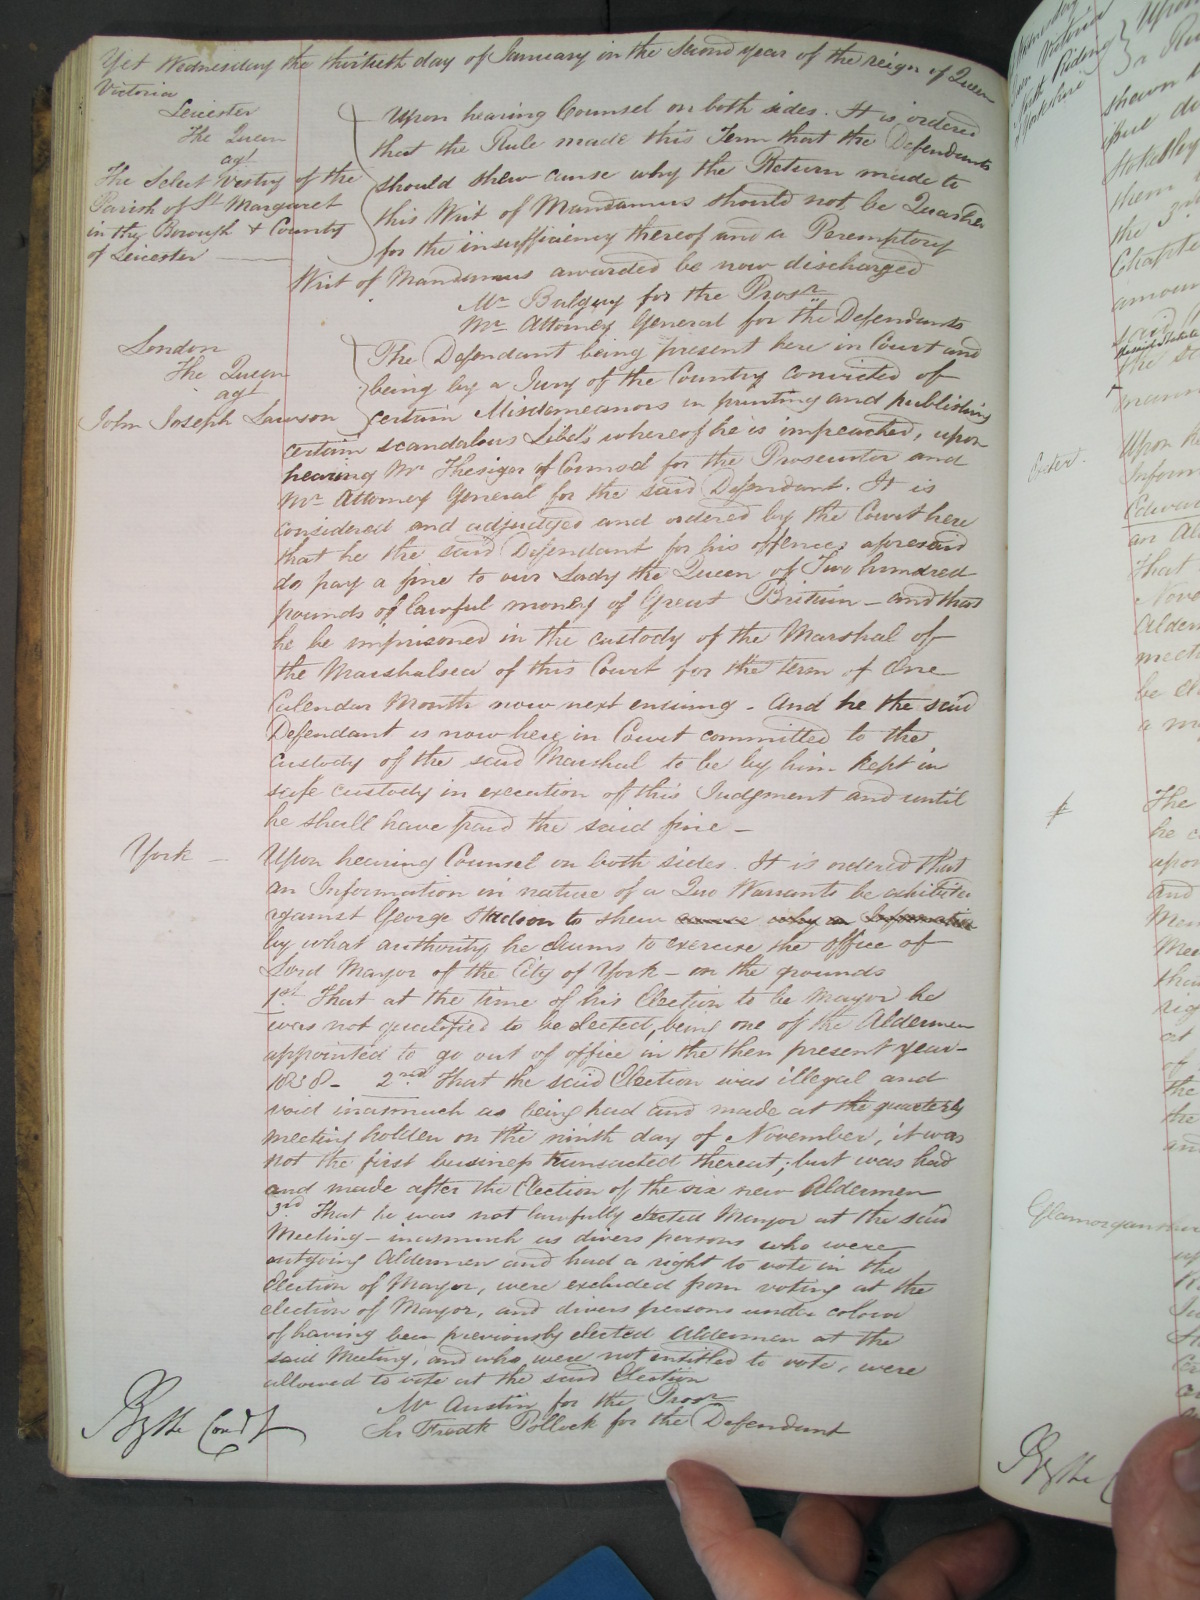 Yet Wednesday the thirtieth day of January in the Second year of the reign of Queen
Victoria
Leicester
The Queen
agt
The Select Vestry of the
Parish of St Margaret
in the Borough & County
of Leicester
Upon hearing Counsel on both sides. It is ordered
that the Rule made this Term that the Defendants
should shew cause why the Return made to
this Writ of Mandamus should not be Quashed
for the insufficiency thereof and a Peremptory
Writ of Mandamus awarded be now discharged
Mr Balguy for the Prosr
Mr Attorney General for the Defendants
London
The Queen
agt
John Joseph Lawson
The Defendant being present here in Court and
being by a Jury of the Country convicted of
certain Misdemeanors in printing and publishing
certain scandalous Libels whereof he is impeached, upon
hearing Mr Thesiger of Counsel for the Prosecutor and
Mr Attorney General for the said Defendant. It is
considered and adjudged and ordered by the Court here
that he the said Defendant for his offences aforesaid
do pay a fine to our Lady the Queen of Two hundred
pounds of lawful money of Great Britain – and that
he be imprisoned in the custody of the Marshal of
the Marshalsea of this Court for the term of One
Calendar Month now next ensuing – And he the said
Defendant is now here in Court committed to the
custody of the said Marshal to be by him kept in
safe custody in execution of this Judgment and until
he shall have paid the said fine –
York –
Upon hearing Counsel on both sides. It is ordered that
an Information in nature of a Quo Warranto be exhibited
against George Hudson to shew cause why an Information
by what authority he claims to exercise the office of
Lord Mayor of the City of York – on the grounds
1st That at the time of his Election to be Mayor he
was not qualified to be elected, being one of the Aldermen
appointed to go out of office in the then present year –
1838 – 2nd That the said Election was illegal and
void inasmuch as being had and made at the quarterly
meeting holden on the ninth day of November, it was
not the first business transacted thereat; but was had
and made after the Election of the six new Aldermen
3rd That he was not lawfully elected Mayor at the said
Meeting – inasmuch as divers persons who were
outgoing Aldermen and had a right to vote in the
Election of Mayor, were excluded from voting at the
election of Mayor, and divers persons under colour
of having been previously elected Aldermen at the
said Meeting, and who were not entitled to vote, were
allowed to vote at the said Election
Mr Austin for the Prosr
Sir Fredk Pollock for the Defendant
By the Court
Upon
shewn
Stokesley
them
the 3rd
Chapter
amount
Upon
Inform
Edward
an Al
That
Nove
Aldern
meeti
be
a m
The
he
upon
and
Glamorganshire
By the C